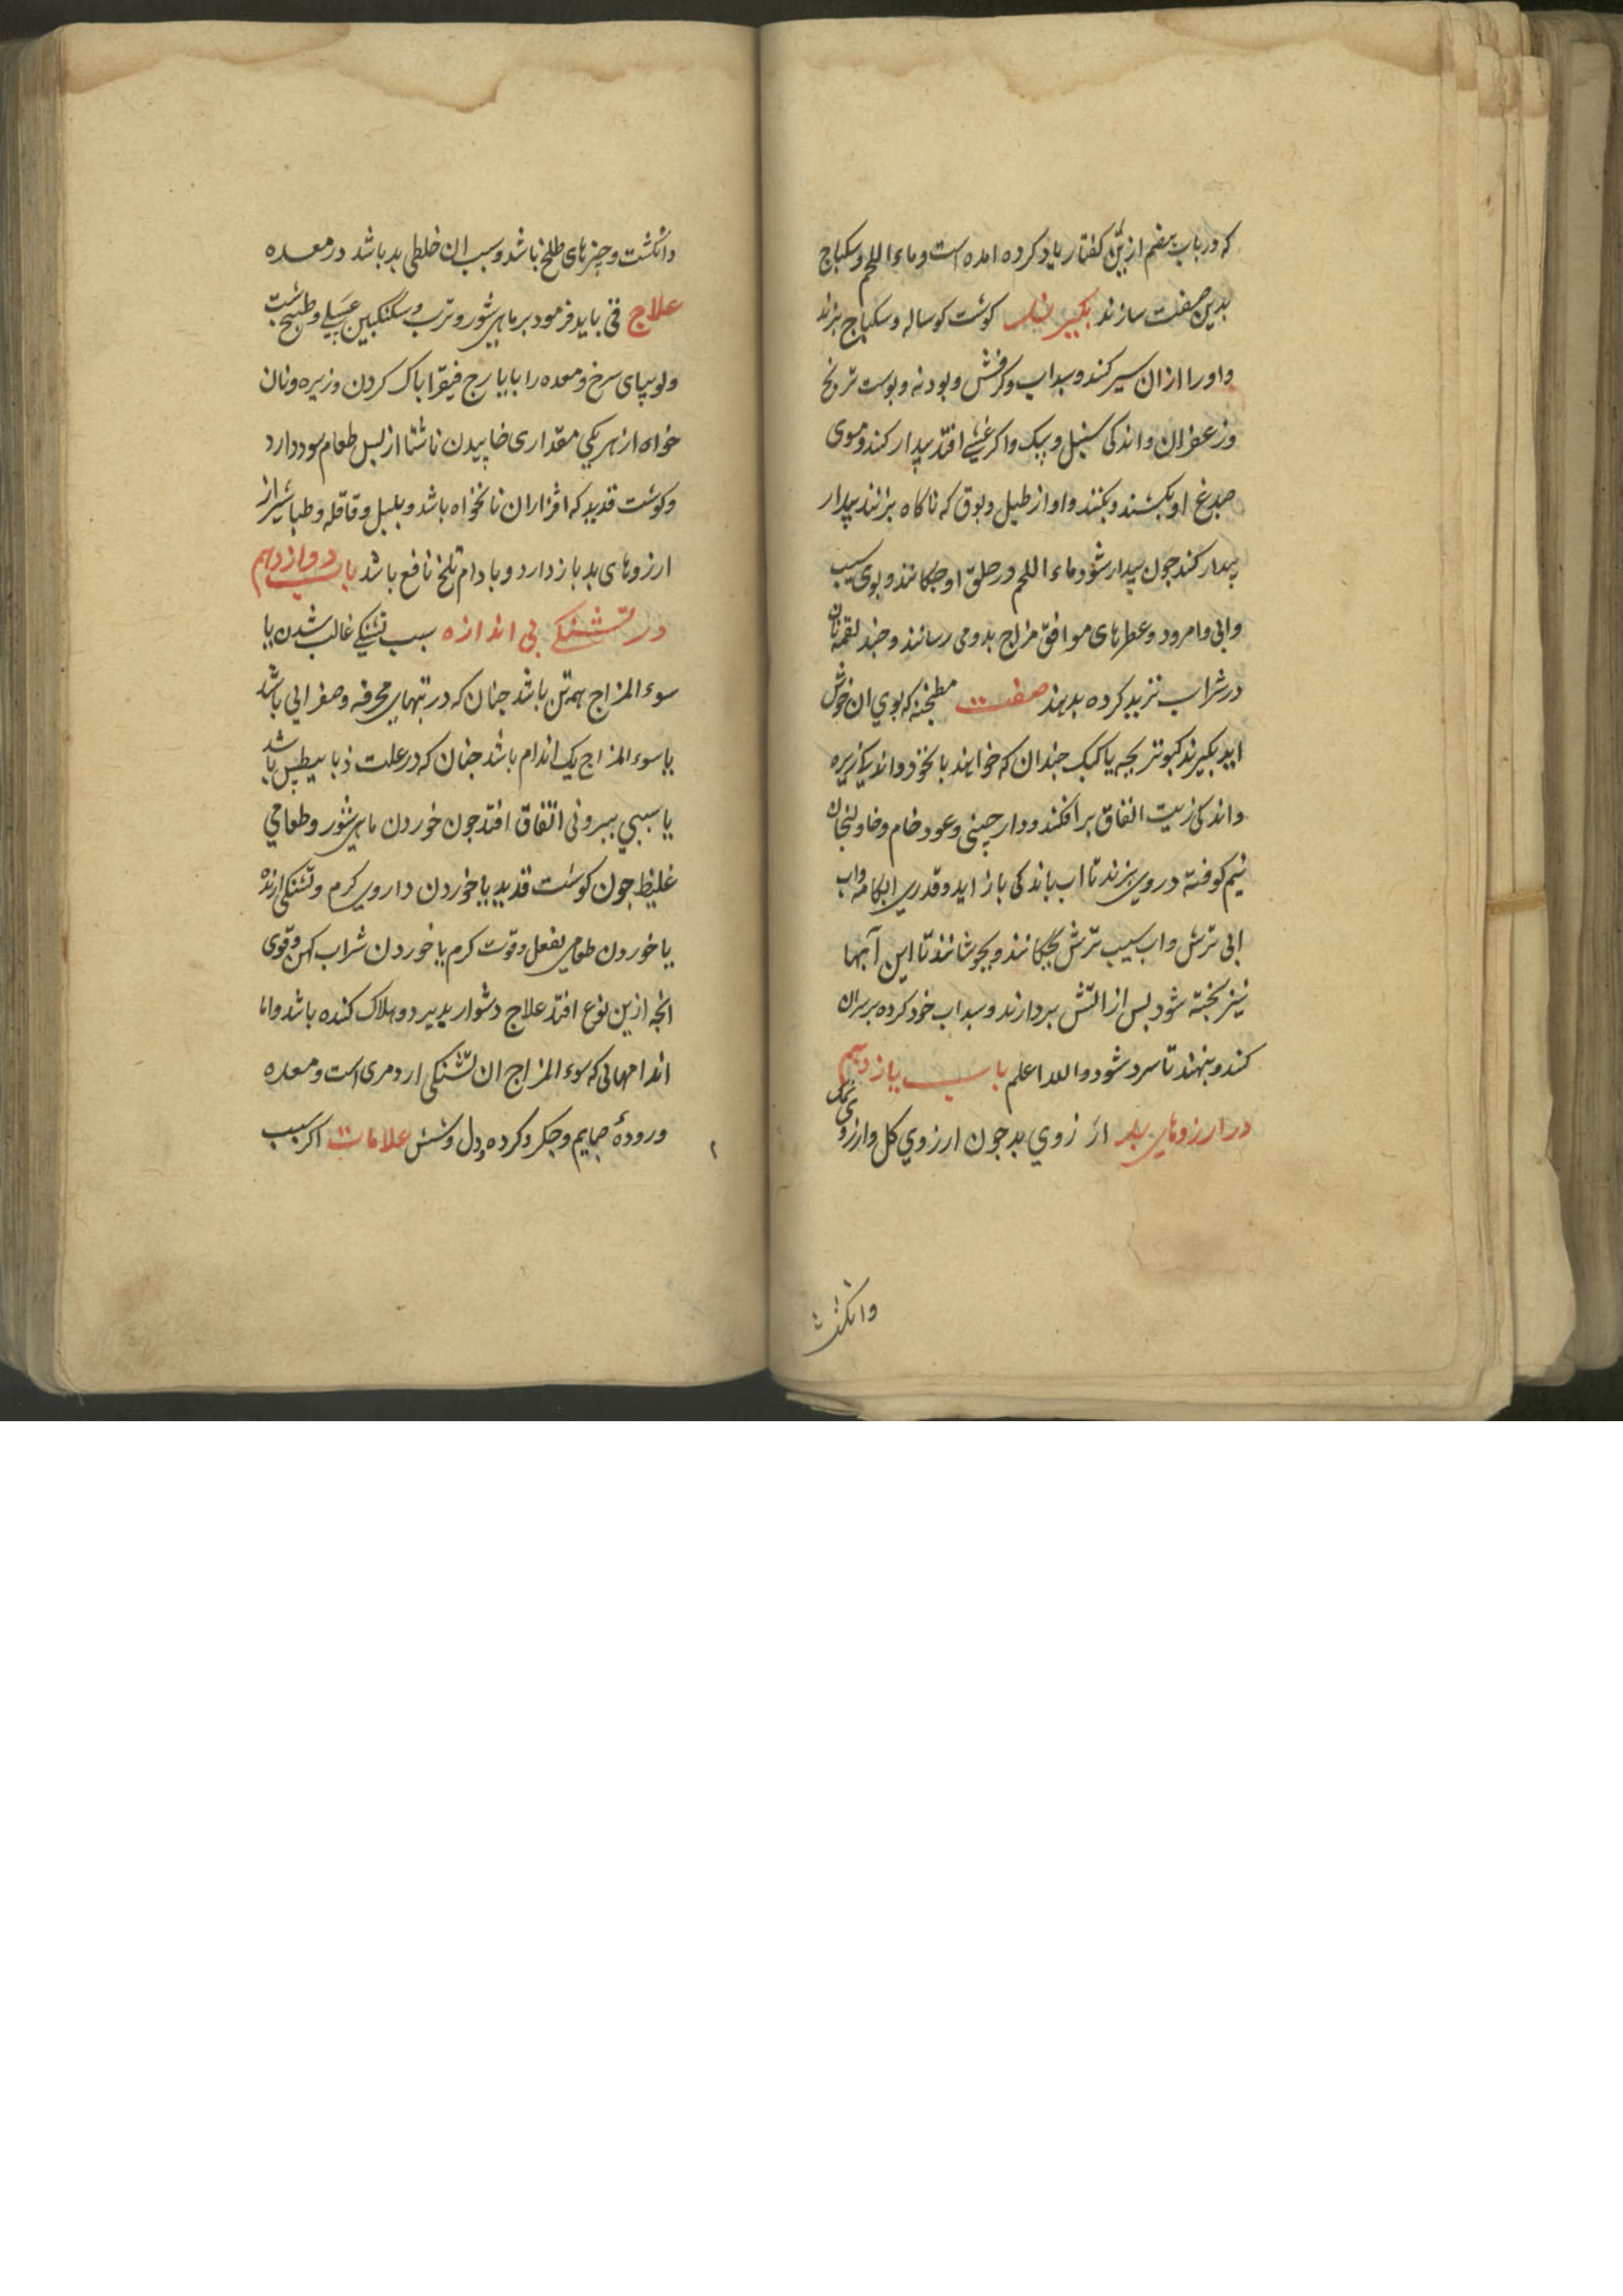 که در باب هفتم ازین کفتار یاد کرده امده است و ماء اللحم و سکباج
بدین صفت سازند بکیرند کوشت کوساله و سکباج بزند
و او را ازان سیر کند و سداب و کرفش و بودنه و بوست ترنج
و زعفران و اندکی سنبل و بیک و اکر غشی افتد بیدار کند و موی
صدغ او بکشند و بکنند و اواز طبل و بوق که ناکاه بزنند بیدار
بیدار کند جون بیدار شود ماء اللحم در حلق او جکانند و بوی سیب
و ابی و امرود و عطرهای موافق مزاج بدو می رسانند و جند لقمه نان
در شراب تزید کرده بدهند صفت مطجنه که بوی ان خوش
اید بکیرند کبوتر بجه یا کبک جندان که خواهند با نخود و اندکی زیره
و اندکی زیت انفاق برافکنند و دارچینی و عود خام و خاولنجان
نیم کوفته در وی بزند تا اب باندکی باز اید و قدری ابکامه و اب
ابی ترش و اب سیب ترش بجکانند و بجوشانند تا این آبها
نیز بخته شود بس از اتش بردارند و سداب خود کرده بر سران
کنند و بنهند تا سرد شود والله اعلم باب یازدهم
در ارزوهای بد ارزوی بد جون ارزوی کل و ارزوی نمک
وانکشت
وانکشت و چیزهای طلخ باشد و سبب ان خلطی بد باشد در معده
علاج قی باید فرمود بر ماهی شور و ترب و سکنکبین عسلی و طبیخ شبت
و لوبیای سرخ و معده را بایارج فیقرا باک کردن و زیره و نان
خواه از هر یکی مقداری خاییدن ناشتا از بس طعام سود دارد
و کوشت قدید که افزاران نانخواه باشد و بلبل و قاقله و طباشیر از
ارزوهای بد باز دارد و بادام تلخ نافع باشد باب دوازدهم
در تشنکی بی اندازه سبب تشنکی غالب شدن یا
سوء المزاج همه تن باشد جنان که در تبهای محرقه و صفرایی باشد
یا سوء المزاج یک اندام باشد جنان که در علت ذیابیطیس باشد
یا سببی بیرونی اتفاق افتد جون خوردن ماهی شور و طعامی
غلیظ جون کوشت قدید یا خوردن داروی کرم و تشنکی ارنده
یا خوردن طعامی بفعل و قوت کرم یا خوردن شراب کهن و قوی
انجه ازین نوع افتد علاج دشوار بدیرد و هلاک کننده باشد و اما
اندامهائی که سوء المزاج ان تشنکی ارد مری است و معده
و رودهٔ صایم و جکر و کرده و دل و شش علامات اکر سبب